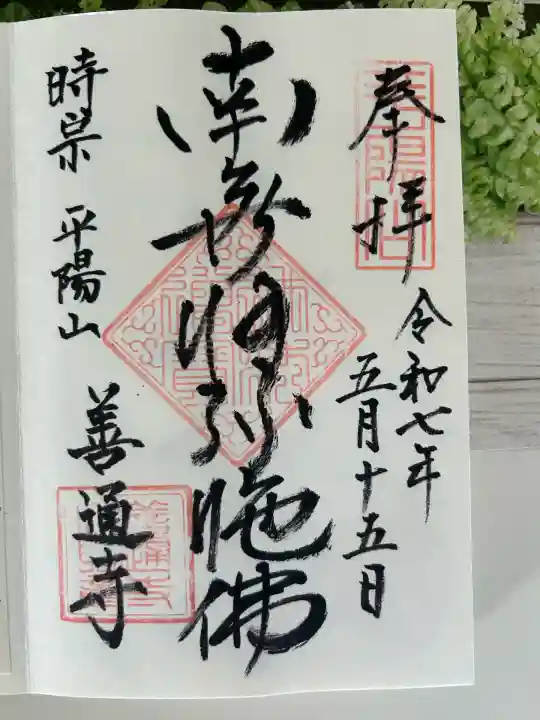 奉拝
令和七年
五月十五日
南無阿弥陀佛
時宗 平陽山 善通寺